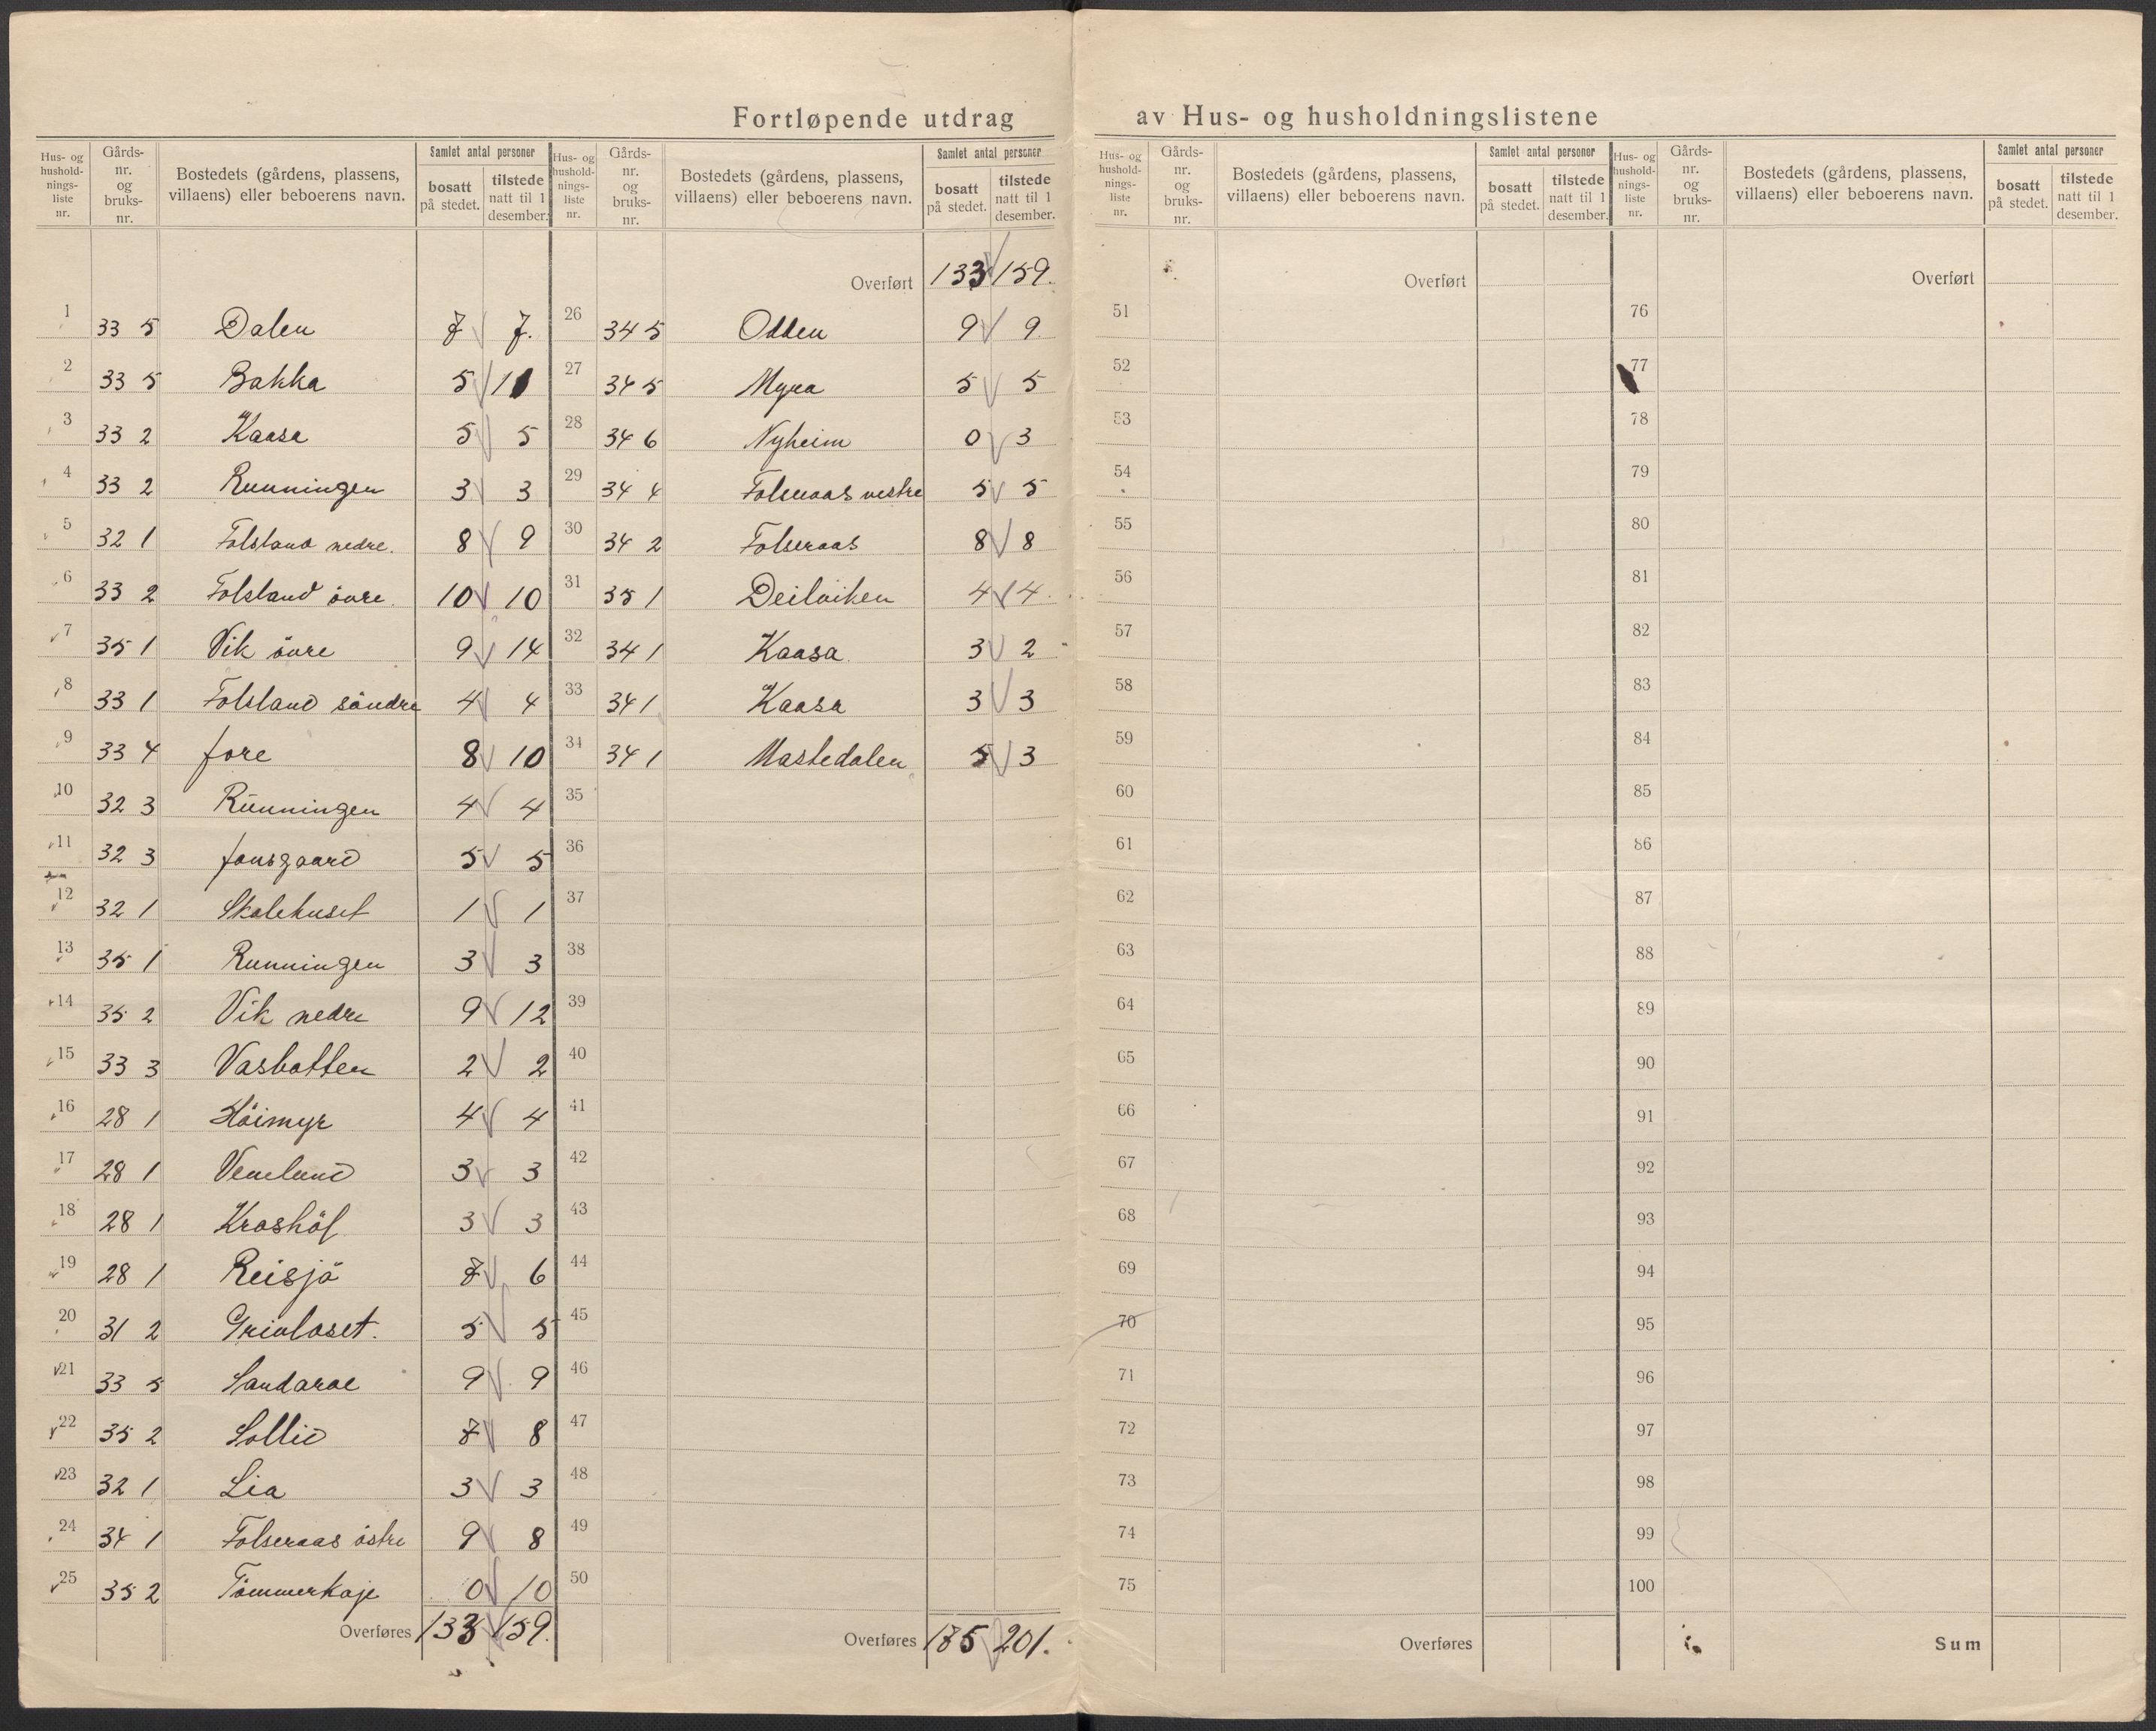 Fortløpende utdrag av Hus- og husholdningslistene
Hus- og husholdnings-liste nr. Gårds-nr. og bruks-nr. Bostedets (gårdens, plassens, villaens) eller beboerens navn. Samlet antal personer bosatt på stedet. tilstede natt til 1 desember.
1 33 5 Dalen 7 7.
2 33 5 Bakka 5 11
3 33 2 Kaasa 5 5
4 33 2 Runningen 3 3
5 32 1 Folsland nedre. 8 9
6 33 2 Folsland övre. 10 10
7 35 1 Vik övre 9 14
8 33 1 Folsland söndre 4 4
9 33 4 Jore 8 10
10 32 3 Runningen 4 4
11 32 3 Jonsgaard 5 5
12 32 1 Skolehuset 1 1
13 35 1 Runningen 3 3
14 35 2 Vik nedre 9 12
15 33 3 Vasbotten 2 2
16 28 1 Höimyr 4 4
17 28 1 Venelund 3 3
18 28 1 Kroshöl 3 3
19 28 1 Reisjö 7 6
20 31 2 Grivlaset. 5 5
21 33 5 Sandaroe 9 9
22 35 2 Sollid 7 8
23 32 1 Lia 3 3
24 34 1 Folseraas östre 9 8
25 35 2 Tömmerkoje 0 10
Overføres 133 159.
Hus- og husholdnings-liste nr. Gårds-nr. og bruks-nr. Bostedets (gårdens, plassens, villaens) eller beboerens navn. Samlet antal personer bosatt på stedet. tilstede natt til 1 desember.
Overført 133 159.
26 34 5 Odden 9 9.
27 34 5 Myra 5 5
28 34 6 Nyheim 0 3
29 34 4 Folseraas vestre 5 5
30 34 2 Folseraas 8 8
31 35 1 Deilviken 4 4
32 34 1 Kaasa 3 2
33 34 1 Kaasa 3 3
34 34 1 Mastedalen 5 3
35
36
37
38
39
40
41
42
43
44
45
46
47
48
49
50
Overføres 175 201.
Hus- og husholdnings-liste nr. Gårds-nr. og bruks-nr. Bostedets (gårdens, plassens, villaens) eller beboerens navn. Samlet antal personer bosatt på stedet. tilstede natt til 1 desember.
Overført
51
52
53
54
55
56
57
58
59
60
61
62
63
64
65
66
67
68
69
70
71
72
73
74
75
Overføres
Hus- og husholdnings-liste nr. Gårds-nr. og bruks-nr. Bostedets (gårdens, plassens, villaens) eller beboerens navn. Samlet antal personer bosatt på stedet. tilstede natt til 1 desember.
Overført
76
77
78
79
80
81
82
83
84
85
86
87
88
89
90
91
92
93
94
95
96
97
98
99
100
Sum